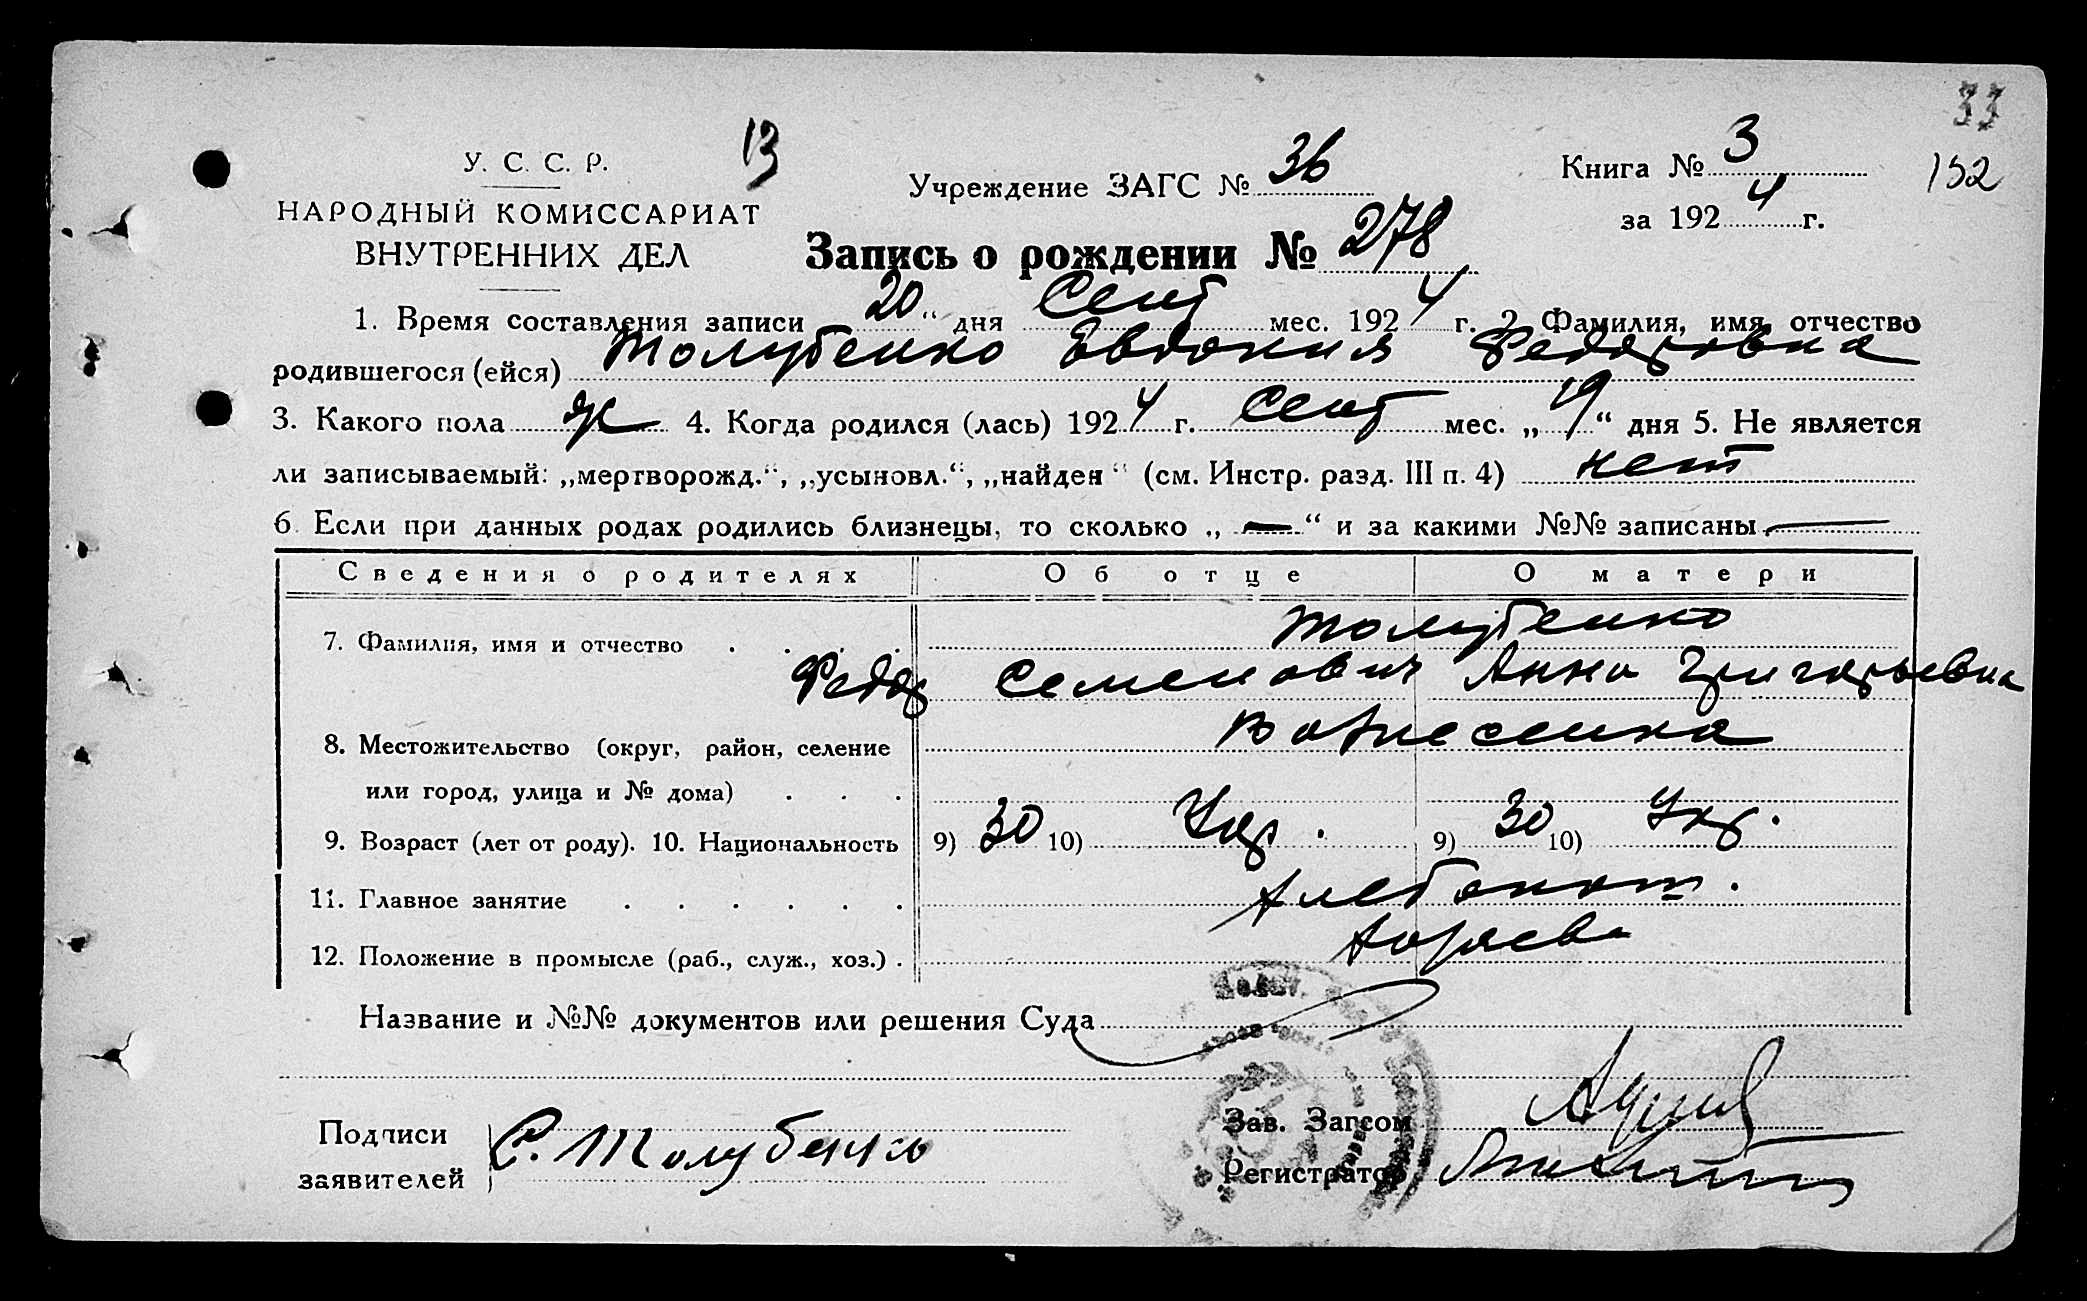 33
У. С. С. Р.
13
Учреждение ЗАГС № 36
Книга № 3
152
НАРОДНЫЙ КОМИССАРИАТ
за 1924 г.
ВНУТРЕННИХ ДЕЛ
Запись о рождении № 278
1. Время составления записи 20 “ дня Сент мес. 1924 г. 2. Фамилия, имя, отчество
родившегося (ейся) Толубенко Евдокия Федоровна
3. Какого пола ж 4. Когда родился (лась) 1924 г. Сент мес. „ 19 “ дня 5. Не является
ли записываемый: „мертворожд.“, „усыновл.“, „найден“ (см. Инстр. разд. III п. 4) нет
6. Если при данных родах родились близнецы, то сколько „ — “ и за какими №№ записаны —
Сведения о родителях Об отце О матери
Толубенко
7. Фамилия, имя и отчество . . . .
Федор Семенович Анна Григорьевна
Вознесенка
8. Местожительство (округ, район, селение
или город, улица и № дома) . . .
9. Возраст (лет от роду). 10. Национальность 9) 30 10) Укр. 9) 30 10) Укр.
11. Главное занятие . . . . . . Хлебопаш.
12. Положение в промысле (раб., служ., хоз.) . хозяева
Название и №№ документов или решения Суда
Подписи
заявителей С. Толубенко
Зав. Загсом
Регистратор